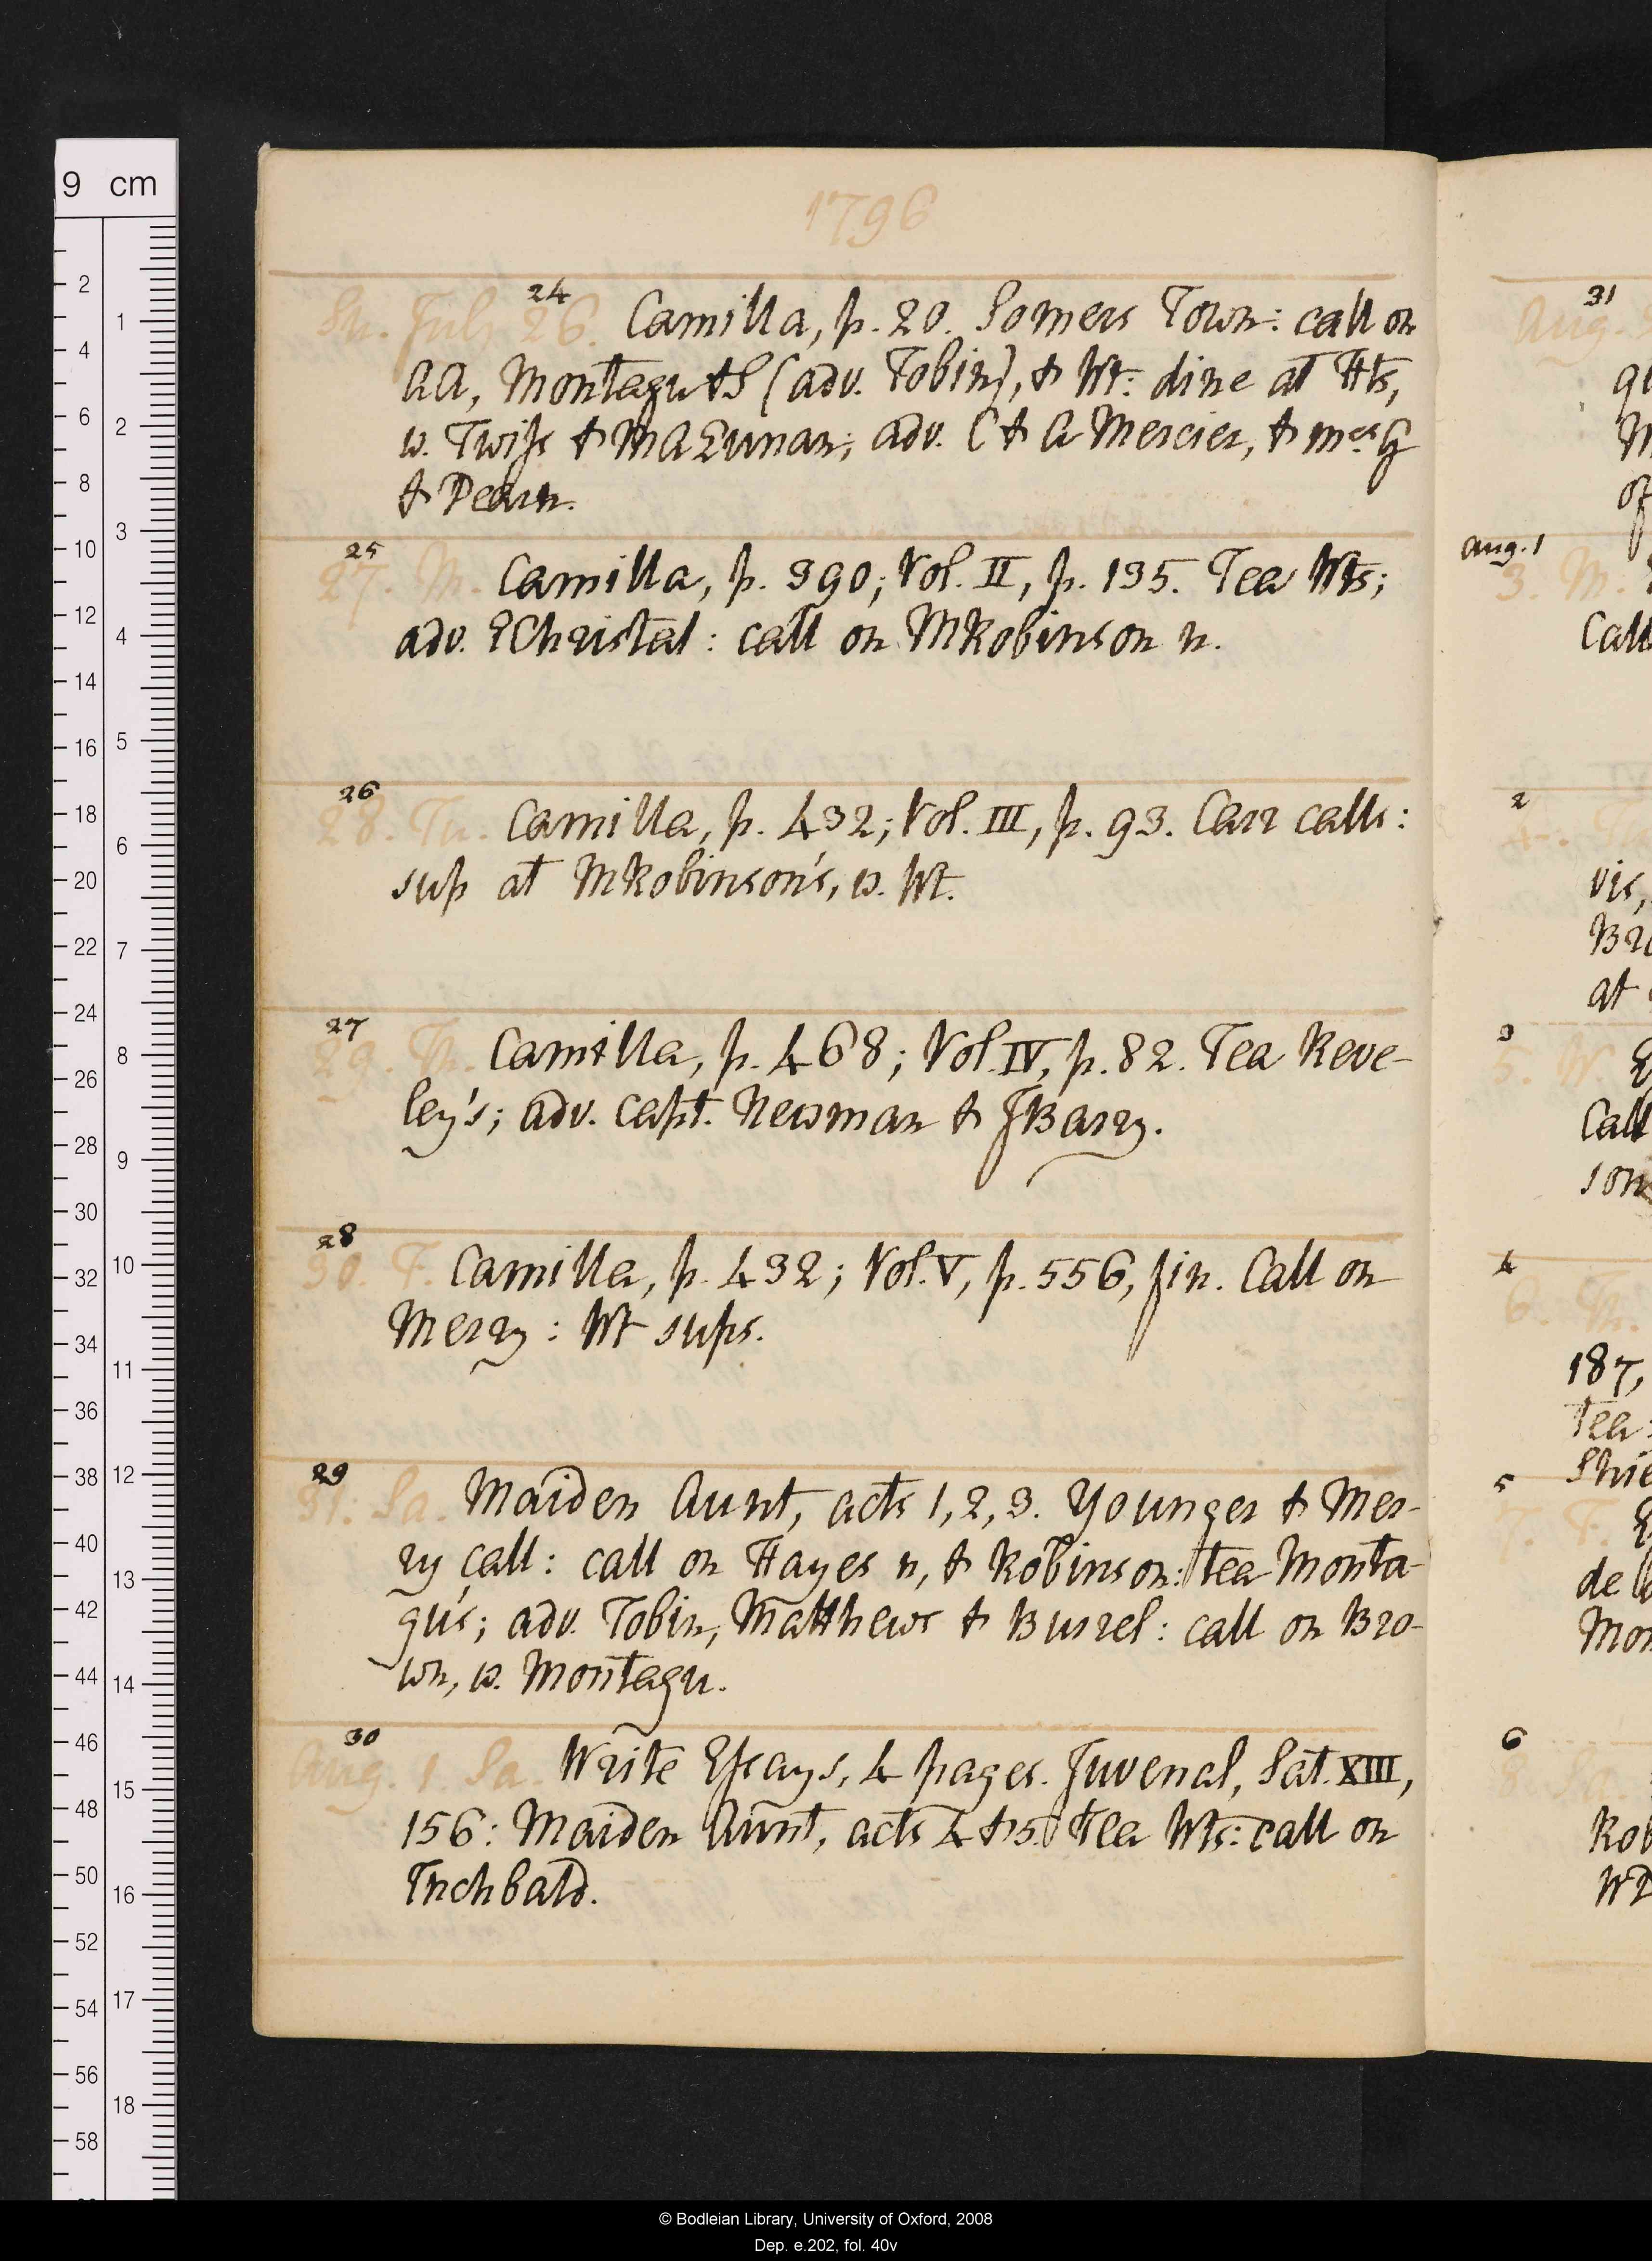 1796
Su. July 26. 24 Camilla, p. 20. Somers Town: call on
AA, Montagu & S (adv. Tobin), & Wt: dine at Hts,
w. Twiſs & MA Zunan; adv. C & A Mercier, & mrs G
& Pearn.
25
27. M. Camilla, p. 390; Vol. II, p. 135. Tea Wts;
adv. PChristal: call on MRobinson n.
26
28. Tu. Camilla, p. 432; Vol. III, p. 93. Carr calls:
sup at MRobinson's, w. Wt.
27
29. Th. Camilla, p. 468; Vol. IV, p. 82. Tea Reve-
ley's; adv. capt. Newman & JBarry.
28
30. F. Camilla, p. 432; Vol. V, p. 556, fin. Call on
Merry: Wt sups.
29
31. Sa. Maiden Aunt, acts 1, 2, 3. Younger & Mer-
ry call: call on Hayes n, & Robinson: tea Monta-
gu's; adv. Tobin, Matthews & Burrel: call on Bro-
wn, w. Montagu.
30
Aug. 1 Sa. Write Eſsays, 4 pages. Juvenal, Sat. XIII,
156: Maiden Aunt, acts 4 & 5. Tea Wts: call on
Inchbald.
31
Aug.
Aug. 1
3. M.
Call
2
vis,
Bro
at
3
5. W.
Call
son
4
6. Th.
187,
Tea:
Shie
5
7. F.
de
Mon
6
8
Rob
© Bodleian Library, University of Oxford, 2008
Dep. e.202, fol. 40v
9 cm
2
4
6
8
10
12
14
16
18
20
22
24
26
28
30
32
34
36
38
40
42
44
46
48
50
52
54
56
58
1
2
3
4
5
6
7
8
9
10
11
12
13
14
15
16
17
18